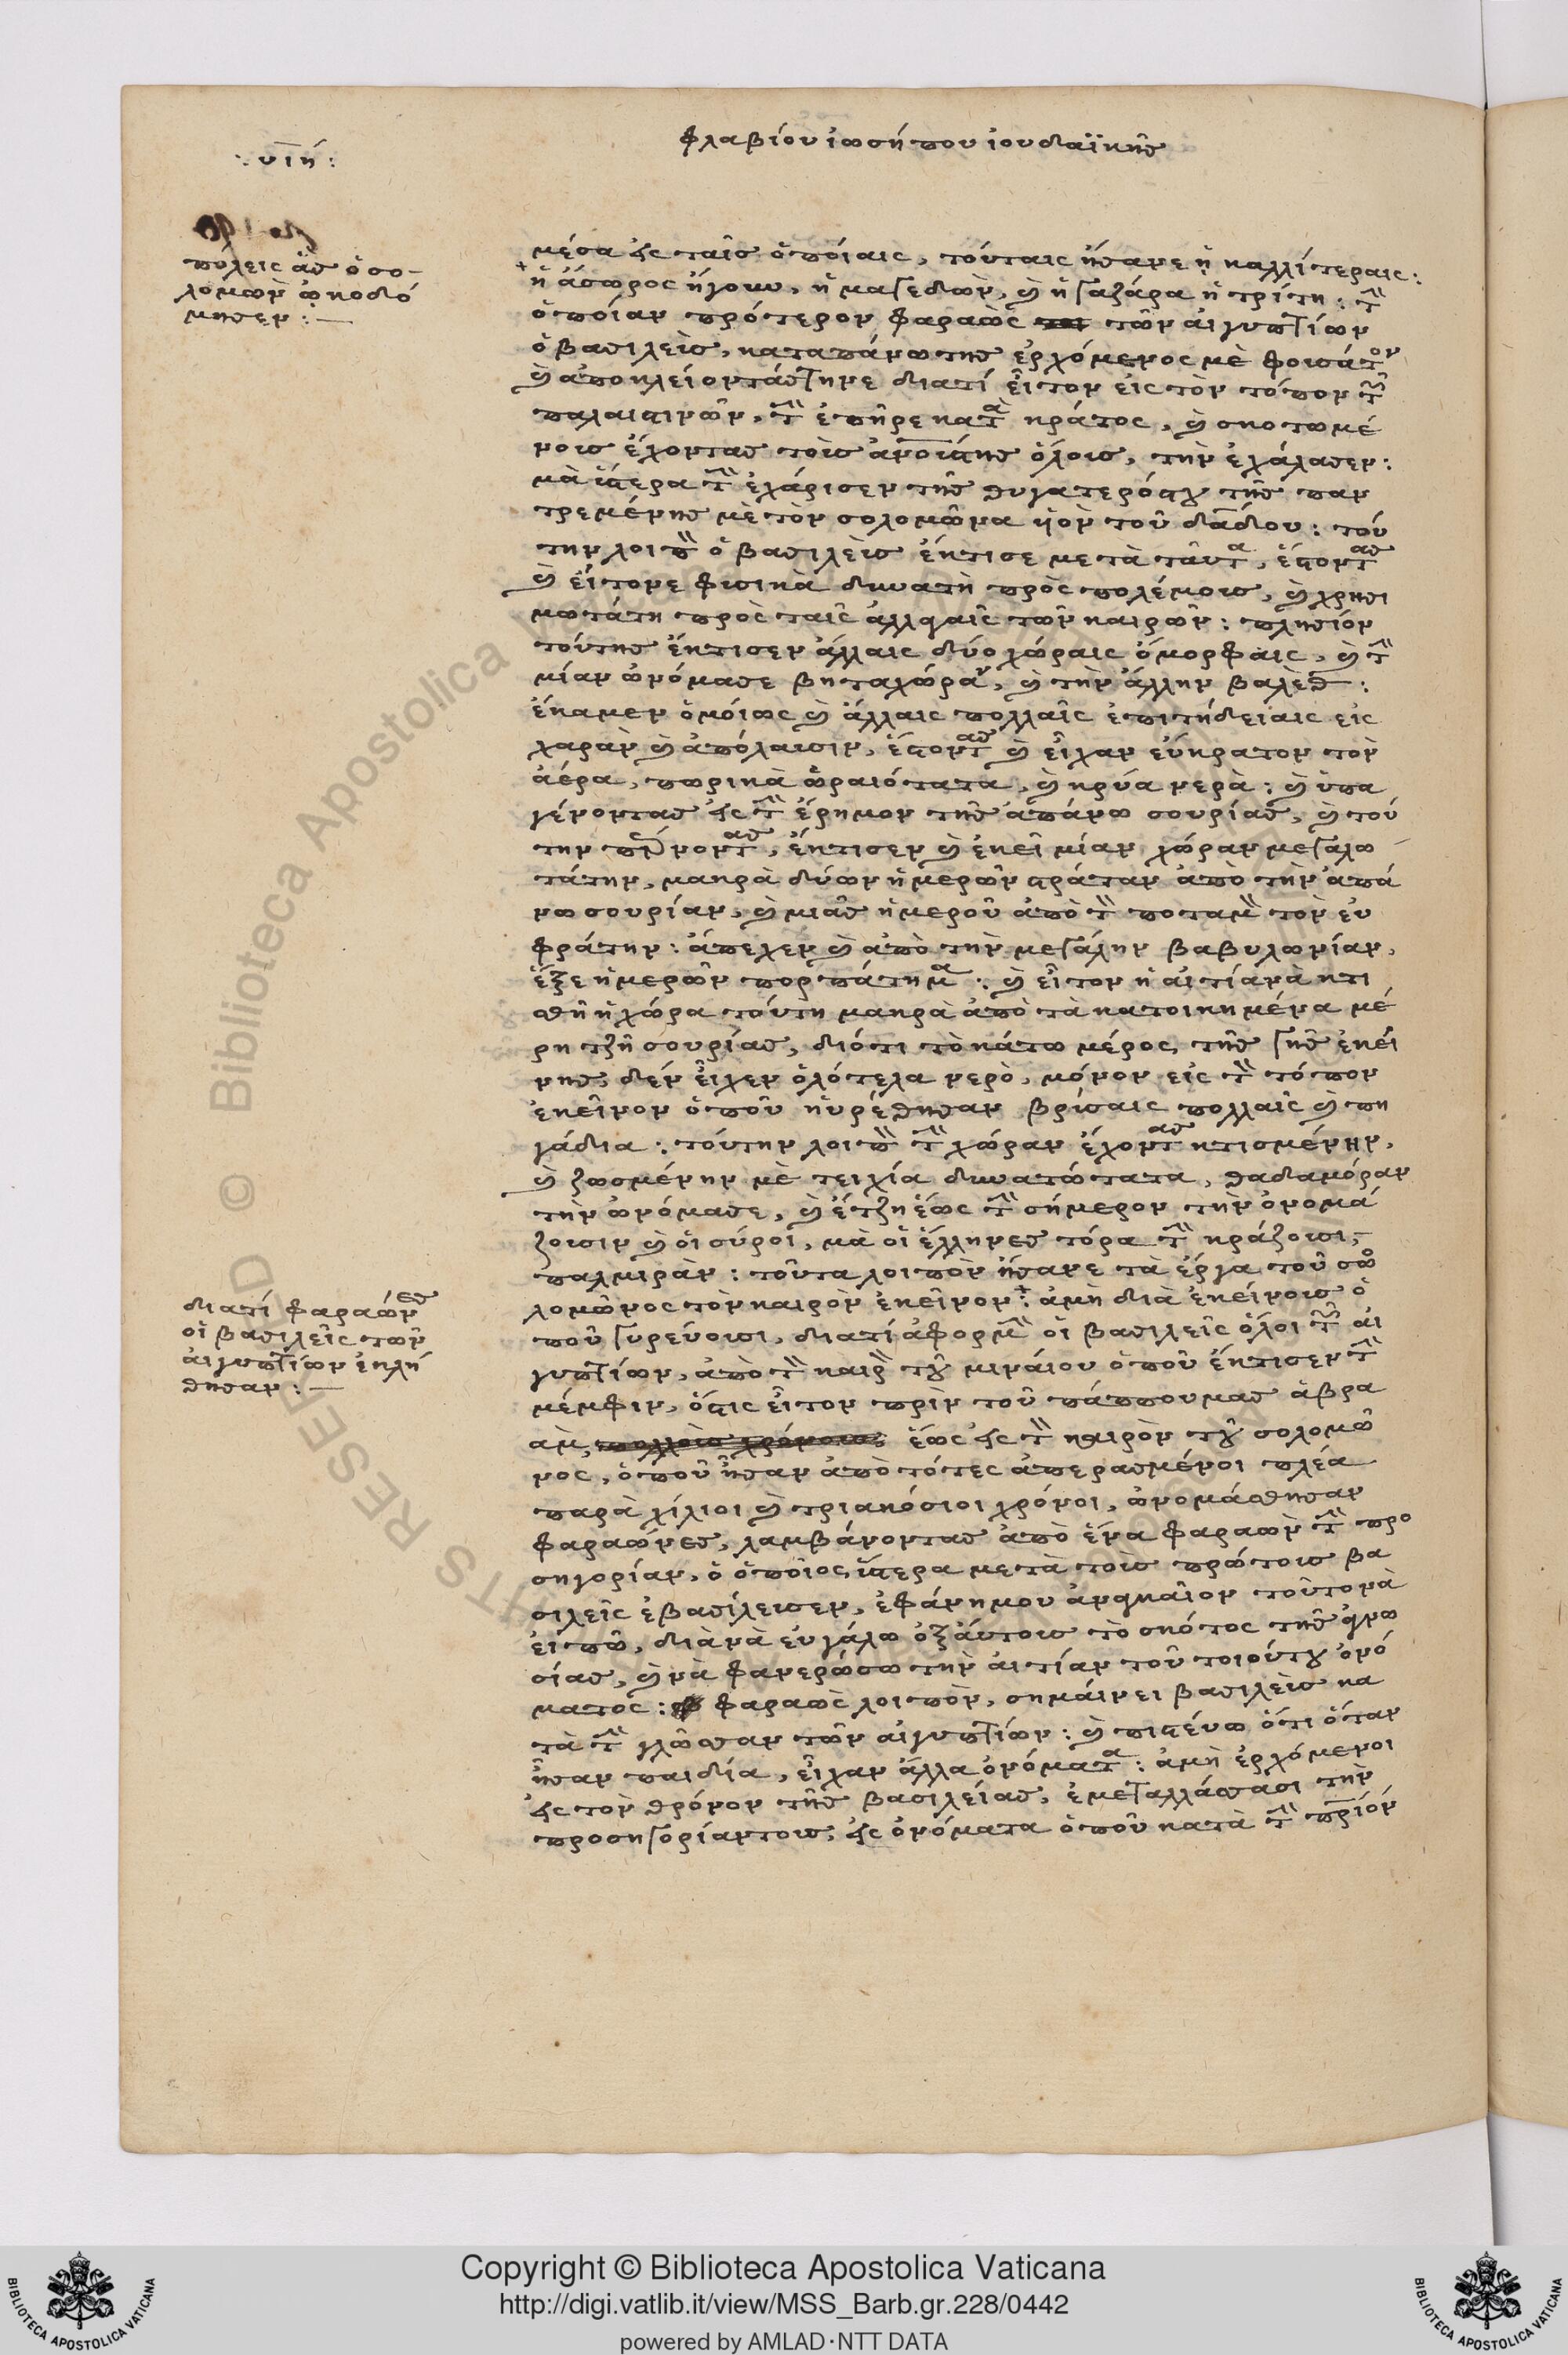 φλαβίου ἰωσήπου ἰουδαϊκῆς
·υιη:
πόλεις ἃς ὁ σο-
λομὼν ᾠκοδό
μησεν:—
μέσα εἰς ταῖς ὁποίαις, τούταις ἤσανε ἡ καλλίτεραις:
ἡ ἄσωρος ἤγουν, ἡ μαγεδὼν, καὶ ἡ γαζάρα ἡ τρίτη: τὴν
ὁποίαν πρότερον φαραὼς τῶν αἰγυπτίων
ὁ βασιλεὺς, καταπάνω της ἐρχόμενος μὲ φουσάτον
καὶ ἀποκλείοντάς τηνε διατί εἶτον εἰς τὸν τόπον τῶν
παλαιστινῶν, τὴν ἐπῆρε κατὰ κράτος, καὶ σκοτωμέ
νους ἔχοντας τοὺς ἀνθρώπους της ὅλους, τὴν ἐχάλασεν:
μὰ ὕστερα τὴν ἐχάρισεν τῆς θυγατερός του τῆς παν
τρεμένης μὲ τὸν σολομῶνα υἱὸν τοῦ δαδίου: τού
την λοιπὸν ὁ βασιλεὺς ἔκτισε μετὰ ταῦτα, ἔστοντας
καὶ εἴτονε φυσικὰ δυνατὴ πρὸς πολέμους, καὶ χρησι
μωτάτη πρὸς ταῖς ἀλλαγαῖς τῶν καιρῶν: πλησίον
τούτης ἔκτισεν ἄλλαις δύο χώραις ὄμορφαις, καὶ τὴν
μίαν ὠνόμασε βηταχώραν, καὶ τὴν ἄλλην βαλεθ:
ἔκαμεν ὁμοίως καὶ ἄλλαις πολλαῖς ἐπιτήδειαις εἰς
χαρὰν καὶ ἀπόλαυσιν, ἔστοντας καὶ εἶχαν εὔκρατον τὸν
ἀέρα, πωρικὰ ὡραιότατα, καὶ κρύα νερὰ: καὶ ὑπα
γένοντας εἰς τὴν ἔρημον τῆς ἀπάνω συρίας, καὶ τού
την παίρνοντας, ἔκτισεν καὶ ἐκεῖ μίαν χώραν μεγαλω
τάτην, μακρὰ δύων ἡμερῶν στράταν ἀπὸ τὴν ἀπά
νω συρίαν, καὶ μιᾶς ἡμεροῦ ἀπὸ τὸν ποταμὸν τὸν ἐυ
φράτην: ἄπεχεν καὶ ἀπὸ τὴν μεγάλην βαβυλωνίαν,
ἕξε ἡμερῶν πορπάτημα: καὶ εἶτον ἡ αἰτία νὰ κτι
σθῆ ἡ χώρα τούτη μακρὰ ἀπὸ τὰ κατοικημένα μέ
ρη τζῆ συρίας, διότι τὸ κάτω μέρος τῆς γῆς ἐκεί
νης δὲν εἶχεν ὁλότελα νερὸ, μόνον εἰς τὸν τόπον
ἐκεῖνον ὁποῦ ηὑρέθησαν βρύσαις πολλαῖς καὶ πη
γάδια: τούτην λοιπὸν τὴν χώραν ἔχοντας κτισμένην,
καὶ ζωσμένην μὲ τειχία δυνατώτατα, θαδαμόραν
τὴν ὠνόμασε, καὶ ἔτζη ἕως τὴν σήμερον τὴν ὀνομά
ζουσιν καὶ οἱ σύροι, μὰ οἱ ἕλληνες τόρα τὴν κράζουσι,
παλμιρὰν: τοῦτα λοιπὸν ἤσανε τὰ ἔργα τοῦ σο
λομῶνος τὸν καιρὸν ἐκεῖνον: ἀμὴ διὰ ἐκείνους ὁ
ποῦ γυρεύουσι, διατί ἀφορμὴν οἱ βασιλεῖς ὅλοι τῶν αἰ
γυπτίων, ἀπὸ τὸν καιρὸν τοῦ μιναίου ὁποῦ ἔκτισεν τὴν
μέμφιν, ὅστις εἶτον πρὶν τοῦ πάππου μας ἀβρα
ὰμ, πολλοὺς χρόνους, ἕως εἰς τὸν καιρὸν τοῦ σολομῶ
νος, ὁποῦ ἦσαν ἀπὸ τότες ἀπερασμένοι πλέα
παρὰ χίλιοι καὶ τριακόσιοι χρόνοι, ὠνομάσθησαν
φαραώνες, λαμβάνοντας ἀπὸ ἕνα φαραὼν τὴν προ
σηγορίαν, ὁ ὁποῖος ὕστερα μετὰ τοὺς πρώτους βα
σιλεῖς ἐβασίλευσεν, ἐφάνη μου ἀναγκαῖον τοῦτο νὰ
εἰπῶ, διὰ νὰ εὐγάλω ὀξ᾽ αὐτους τὸ σκότος τῆς ἀγνω
σίας, καὶ νὰ φανερώσω τὴν αἰτίαν τοῦ τοιούτου ὀνό
ματος: φαραὼς λοιπὸν, σημαίνει βασιλεὺς κα
τὰ τὴν γλῶσσαν τῶν αἰγυπτίων: καὶ πιστεύω ὅτι ὅταν
ἦσαν παιδία, εἶχαν ἄλλα ὀνόματα: ἀμὴ ἐρχόμενοι
εἰς τὸν θρόνον τῆς βασιλείας, ἐμεταλλάσσασι τὴν
προσηγορίαν τους, εἰς ὀνόματα ὁποῦ κατὰ τὴν πάτριόν
διατί φαραώνες
οἱ βασιλεῖς τῶν
αἰγυπτίων ἐκλή
θησαν:—
© Biblioteca Apostolica Vaticana
Copyright © Biblioteca Apostolica Vaticana
http://digi.vatlib.it/view/MSS_Barb.gr.228/0442
powered by AMLAD·NTT DATA
BIBLIOTECA APOSTOLICA VATICANA
BIBLIOTECA APOSTOLICA VATICANA